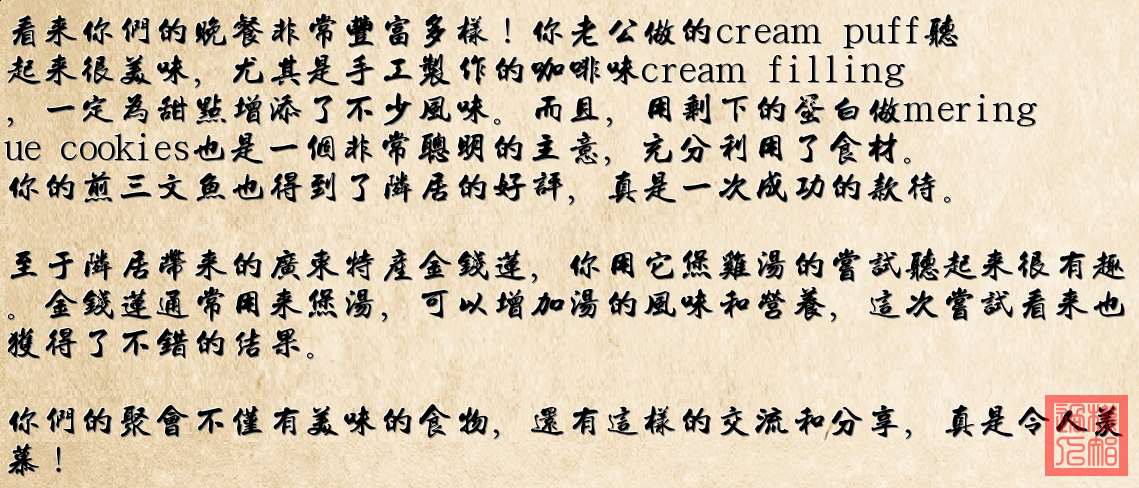 看来你們的晚餐非常豐富多樣！你老公做的cream puff聽
起来很美味，尤其是手工製作的咖啡味cream filling
，一定為甜點增添了不少風味。而且，用剩下的蛋白做mering
ue cookies也是一個非常聰明的主意，充分利用了食材。
你的煎三文魚也得到了隣居的好評，真是一次成功的款待。
至于隣居帶来的廣東特産金錢蓮，你用它煲雞湯的嘗試聽起来很有趣
。金錢蓮通常用来煲湯，可以增加湯的風味和營養，這次嘗試看来也
獲得了不錯的结果。
你們的聚會不僅有美味的食物，還有這樣的交流和分享，真是令人羨
慕！